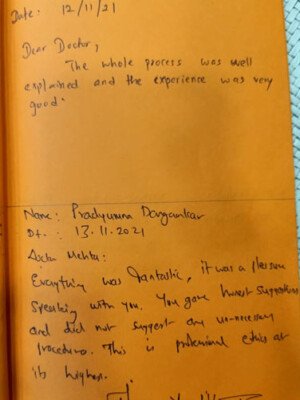 Date: 12/11/21
Dear Doctor,
The whole process was well
explained and the experience was very
good.
Name: Pradyumna Dargaonkar
Dt. : 13.11.2021
Mehta:
Everything was fantastic, it was a pleasure
speaking with you. You gave honest suggestions
and did not suggest any un-necessary
procedures. This is professional ethics at
its highest.